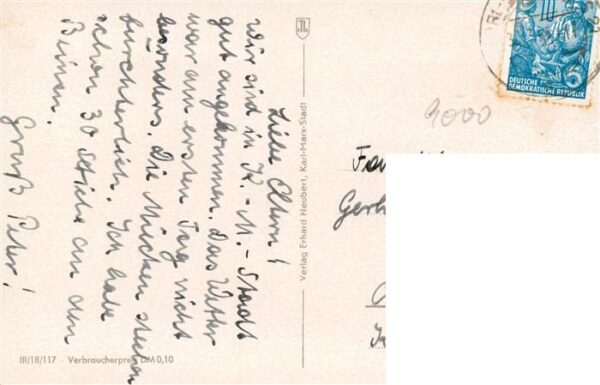 Liebe Eltern!
Wir sind in K.-M.-Stadt
gut angekommen. Das Wetter
war am ersten Tag nicht
besonders. Die Mücken stechen
furchterlich. Ich habe
schon 30 Stiche an den
Beinen.
Gruß Peter!
III/18/117 · Verbraucherpreis DM 0,10
Verlag Erhard Neubert, Karl-Marx-Stadt
10
DEUTSCHE
DEMOKRATISCHE REPUBLIK
5
9000
Fam